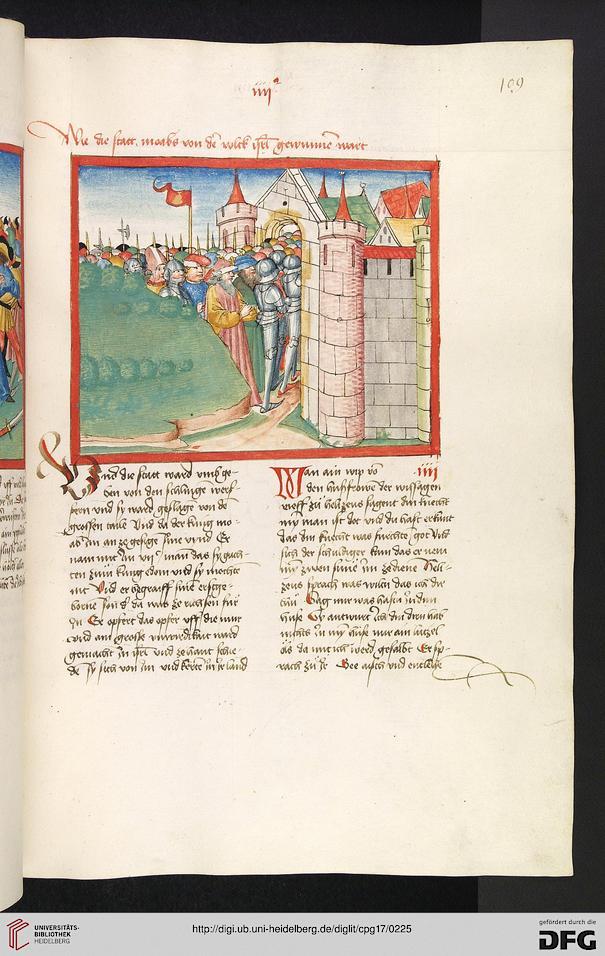 iiij
199
Wie die statt moabs von dem volck isrl gewunnen wart
Und die statt ward umbge-
ben von den schlinge werf-
fern und sy ward geslage von de
grossen taile Und da der kunig mo-
ab
nam mit Im vij man das sy
ten zum kung edom und sy mochte
nit Und er begraiff sine erstge-
borne sun der da was ze richsen fur
In Er opffert das opfer uff die mur
und ain grosse unwirdikait ward
gemacht In isrl und zehant schie-
de sy sich von Im und kerte In ir land
iiij
Man ain wip vo
den der wissagen
rieff zu helizeus sagent din knecht
my man ist dot und du hast erkant
das din knecht was furchte got Nu
sich der schuldiger kum das er nem
my zwen sune Im ze diene Heli-
zeus sprach was wilt das ich dir
tun Sag mir was hastu In dim
huse Sy antwurt Ich din diern hab
nichts In my huse nur ain lutzel
öls da mit ich werd gesalbt Er sp-
rach zu Ir Gee aisch und entlihe
UNIVERSITÄTS-
BIBLIOTHEK
HEIDELBERG
http://digi.ub.uni-heidelberg.de/diglit/cpg17/0225
gefördert durch die
DFG